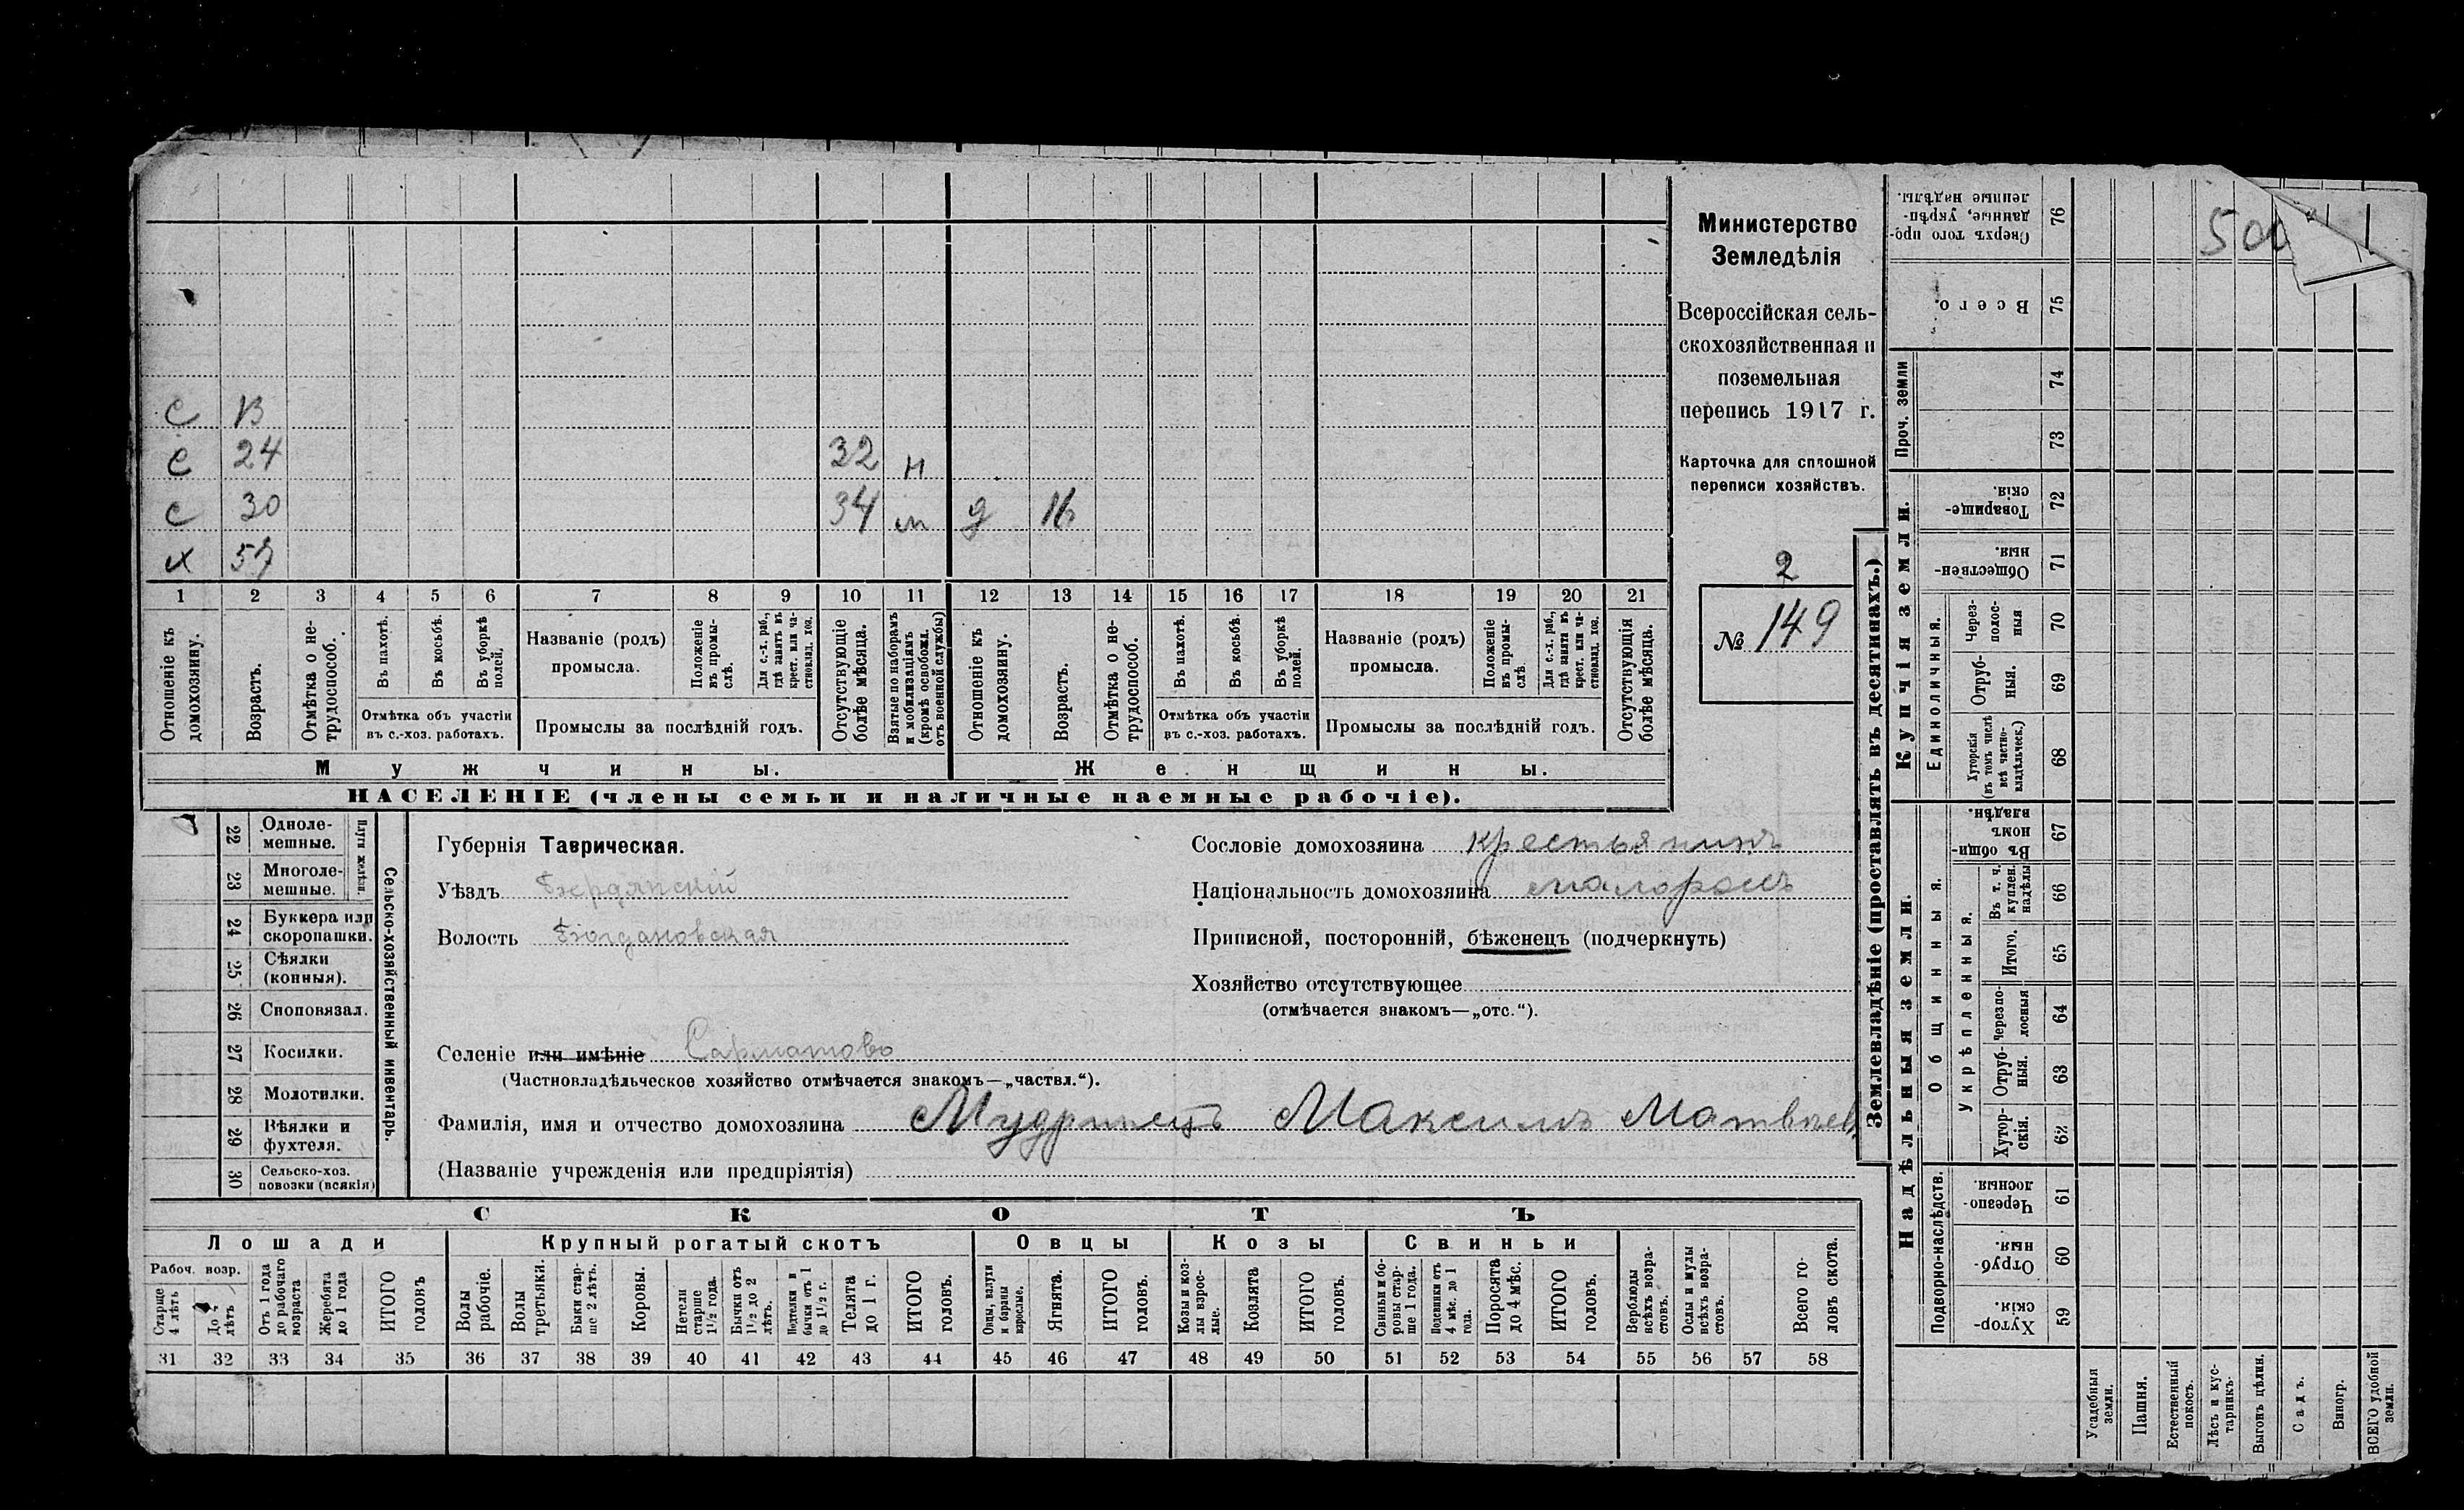 Министерство
Земледѣлія
Всероссійская сель-
скохозяйственная и
поземельная
перепись 1917 г.
Карточка для сплошной
переписи хозяйствъ.
2
№ 149
с 13
с 24 32 н
с 30 34 м д 16
х 57
1 2 3 4 5 6 7 8 9 10 11 12 13 14 15 16 17 18 19 20 21
Отношеніе къ домохозяину.
Возрастъ.
Отмѣтка о не-трудоспособ.
Въ пахотѣ.
Въ косьбѣ.
Въ уборкѣ полей.
Отмѣтка объ участіи
въ с.-хоз. работахъ.
Названіе (родъ)
промысла.
Положеніе въ промы-слѣ.
Для с.-х. раб., гдѣ занятъ въ крест. или ча-стновлад. хоз.
Промыслы за послѣдній годъ.
Отсутствующіе болѣе мѣсяца.
Взятые по наборамъ и мобилизаціямъ (кромѣ освобожд. отъ военной службы)
Отношеніе къ домохозяину.
Возрастъ.
Отмѣтка о не-трудоспособ.
Въ пахотѣ.
Въ косьбѣ.
Въ уборкѣ полей.
Отмѣтка объ участіи
въ с.-хоз. работахъ.
Названіе (родъ)
промысла.
Положеніе въ промы-слѣ.
Для с.-х. раб., гдѣ занятъ въ крест. или ча-стновлад. хоз.
Промыслы за послѣдній годъ.
Отсутствующія болѣе мѣсяца.
Мужчины. Женщины.
НАСЕЛЕНІЕ (члены семьи и наличные наемные рабочіе).
Сельско-хозяйственный инвентарь.
Плуги желѣзн.
22 Одноле-мешные.
23 Многоле-мешные.
24 Буккера или скоропашки.
25 Сѣялки (конныя).
26 Споповязал.
27 Косилки.
28 Молотилки.
29 Вѣялки и фухтеля.
30 Сельско-хоз. повозки (всякія)
Губернія Таврическая.
Уѣздъ Бердянскій
Волость Богдановская
Сословіе домохозяина крестьянинъ
Національность домохозяина малороссъ
Приписной, посторонній, бѣженецъ (подчеркнуть)
Хозяйство отсутствующее
(отмѣчается знакомъ—„отс.“).
Селеніе или имѣніе Сарматово
(Частновладѣльческое хозяйство отмѣчается знакомъ—„частвл.“).
Фамилія, имя и отчество домохозяина Максимъ Матвѣев
(Названіе учрежденія или предпріятія)
СКОТЪ
Лошади Крупный рогатый скотъ Овцы Козы Свиньи
Рабоч. возр.
Старше 4 лѣтъ
До 4 лѣтъ
Отъ 1 года до рабочаго возраста
Жеребята до 1 года
ИТОГО головъ
Волы рабочіе.
Волы третьяки.
Быки стар-ше 2 лѣтъ.
Коровы.
Нетели старше 1½ года.
Бычки отъ 1½ до 2 лѣтъ.
Подтелки и бычки отъ 1 до 1½ г.
Телята до 1 г.
ИТОГО головъ.
Овцы, валухи и бараны взрослые.
Ягнята.
ИТОГО головъ.
Козы и коз-лы взрос-лые.
Козлята
ИТОГО головъ.
Свиньи и бо-ровы стар-ше 1 года.
Подсвинки отъ 4 мѣс. до 1 года.
Поросята до 4 мѣс.
ИТОГО головъ.
Верблюды всѣхъ возра-стовъ.
Ослы и мулы всѣхъ возра-стовъ.
Всего го-ловъ скота.
31 32 33 34 35 36 37 38 39 40 41 42 43 44 45 46 47 48 49 50 51 52 53 54 55 56 57 58
Землевладѣніе (проставлять въ десятинахъ.)
Надѣльныя земли. Купчія земли. Проч. земли
Подворно-наслѣдств.
Общинныя.
Укрѣпленныя.
Единоличныя.
Сверхъ того про-данные, укрѣп-ленные надѣлы. 76
Всего. 75
74
73
Товарище-скія. 72
Обществен-ныя. 71
Через-полос-ныя 70
Отруб-ныя. 69
Хуторскія (въ томъ числѣ всѣ частно-владѣльческ.) 68
Въ общи-номъ владѣн. 67
Въ т. ч. куплен. надѣлы 66
Итого. 65
Черезпо-лосныя 64
Отруб-ныя. 63
Хутор-скія. 62
Черезпо-лосныя. 61
Отруб-ныя. 60
Хутор-скія. 59
Усадебныя земли.
Пашня.
Естественный покосъ.
Лѣсъ и кус-тарникъ.
Выгонъ цѣлин.
Садъ.
Виногр.
ВСЕГО удобной земли.